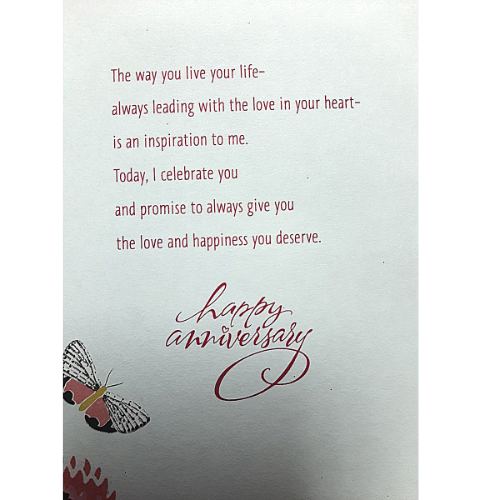 The way you live your life–
always leading with the love in your heart–
is an inspiration to me.
Today, I celebrate you
and promise to always give you
the love and happiness you deserve.
happy
anniversary